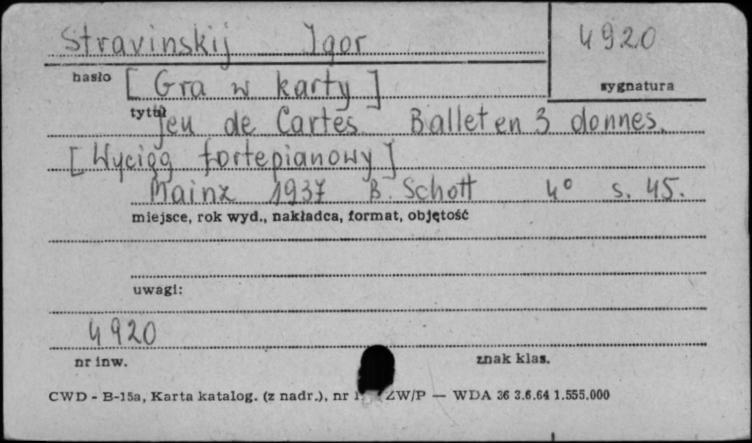 Stravinskij Igor 4920
hasło [Gra w karty] sygnatura
tytuł Jeu de Cartes Ballet en 3 donnes.
[Wyciąg fortepianowy]
Mainz 1937 B. Schott 4° s. 45.
miejsce, rok wyd., nakładca, format, objętość
uwagi:
4920
nr inw. znak klas.
CWD - B-15a, Karta katalog. (z nadr.), nr ZW/P — WDA 36 3.6.64 1.555.000